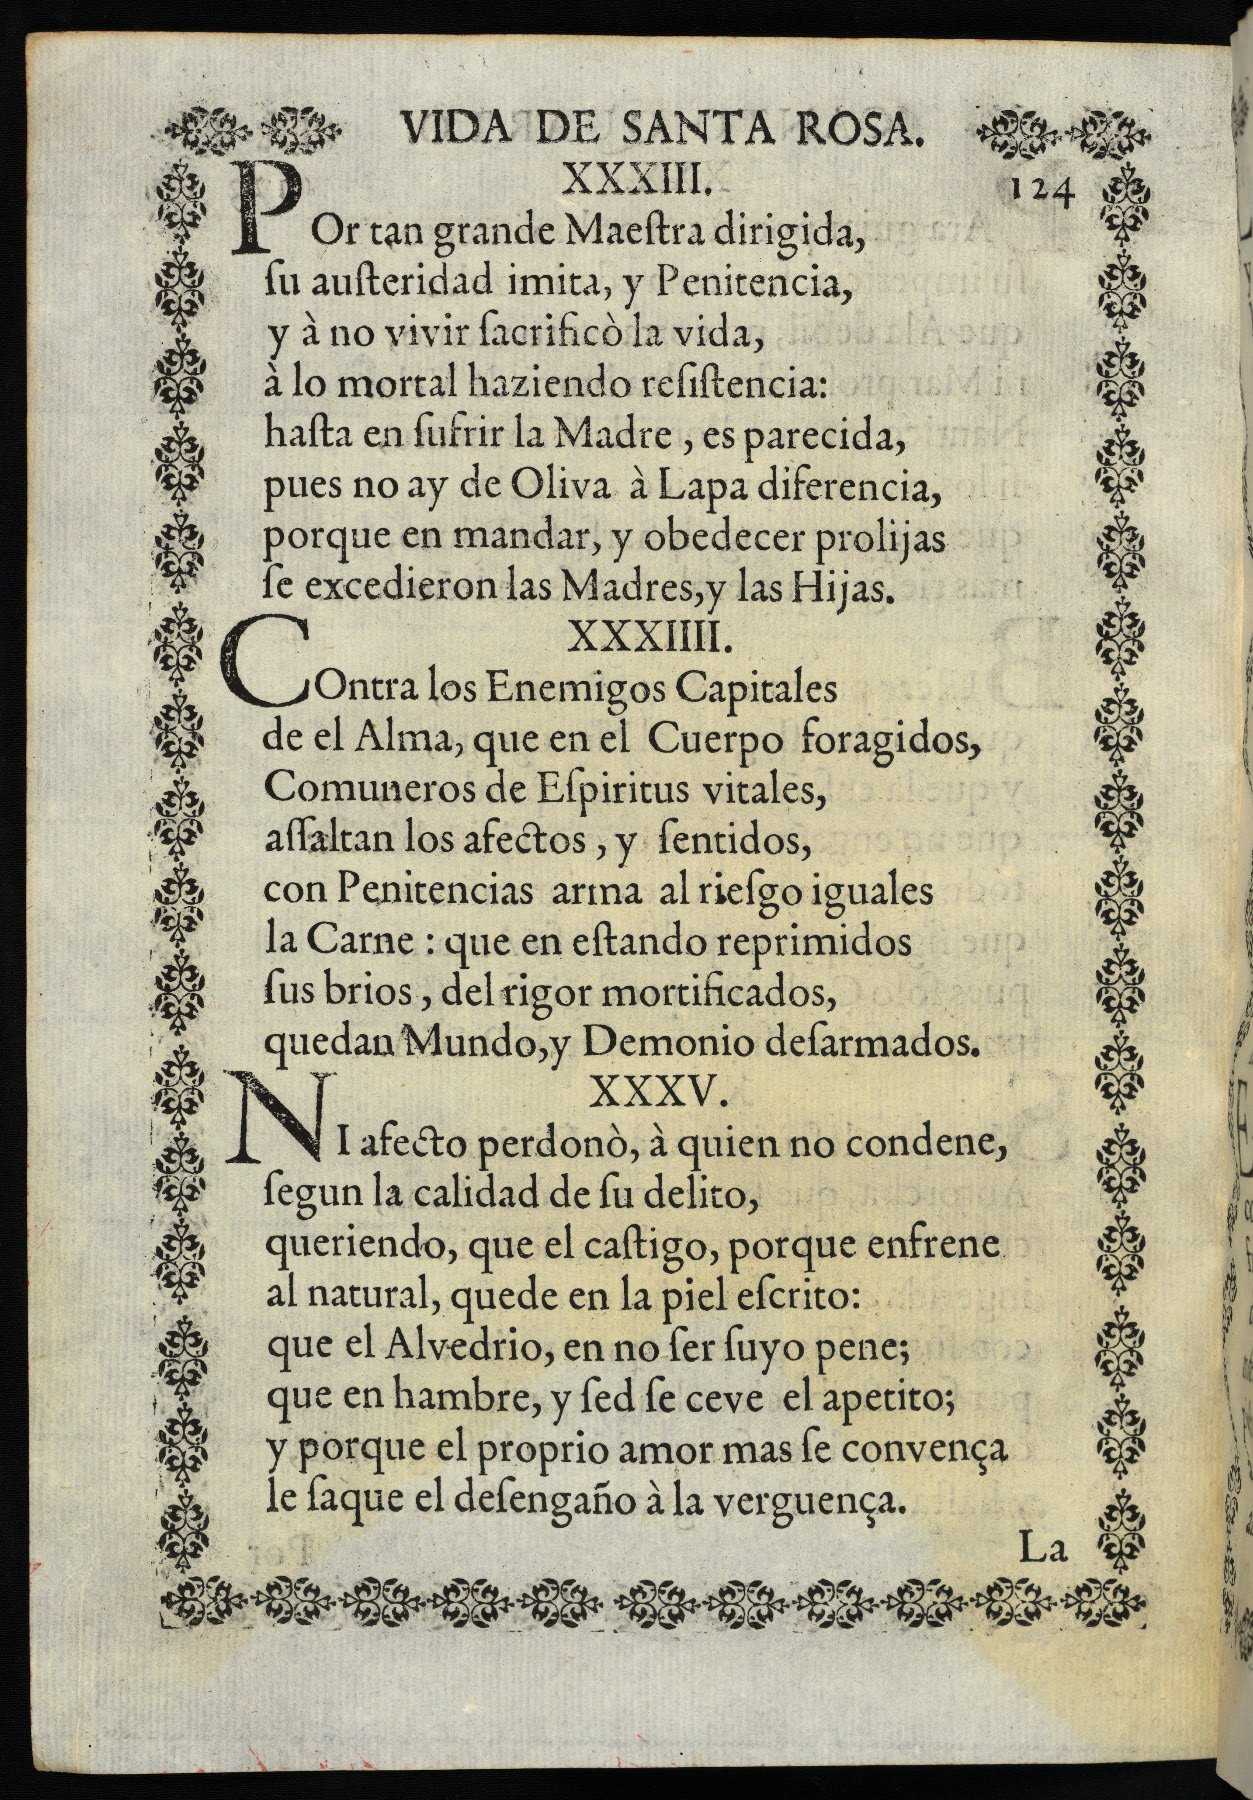 VIDA DE SANTA ROSA.
XXXIII.
124
POr tan grande Maeſtra dirigida,
ſu auſteridad imita, y Penitencia,
y à no vivir ſacrificò la vida,
à lo mortal haziendo reſiſtencia:
haſta en ſufrir la Madre , es parecida,
pues no ay de Oliva à Lapa diferencia,
porque en mandar, y obedecer prolijas
ſe excedieron las Madres,y las Hijas.
XXXIIII.
COntra los Enemigos Capitales
de el Alma, que en el Cuerpo foragidos,
Comuneros de Eſpiritus vitales,
aſſaltan los afectos , y ſentidos,
con Penitencias arma al rieſgo iguales
la Carne : que en eſtando reprimidos
ſus brios , del rigor mortificados,
quedan Mundo,y Demonio deſarmados.
XXXV.
NI afecto perdonò, à quien no condene,
ſegun la calidad de ſu delito,
queriendo, que el caſtigo, porque enfrene
al natural, quede en la piel eſcrito:
que el Alvedrio, en no ſer ſuyo pene;
que en hambre, y ſed ſe ceve el apetito;
y porque el proprio amor mas ſe convença
le ſaque el deſengaño à la verguença.
La